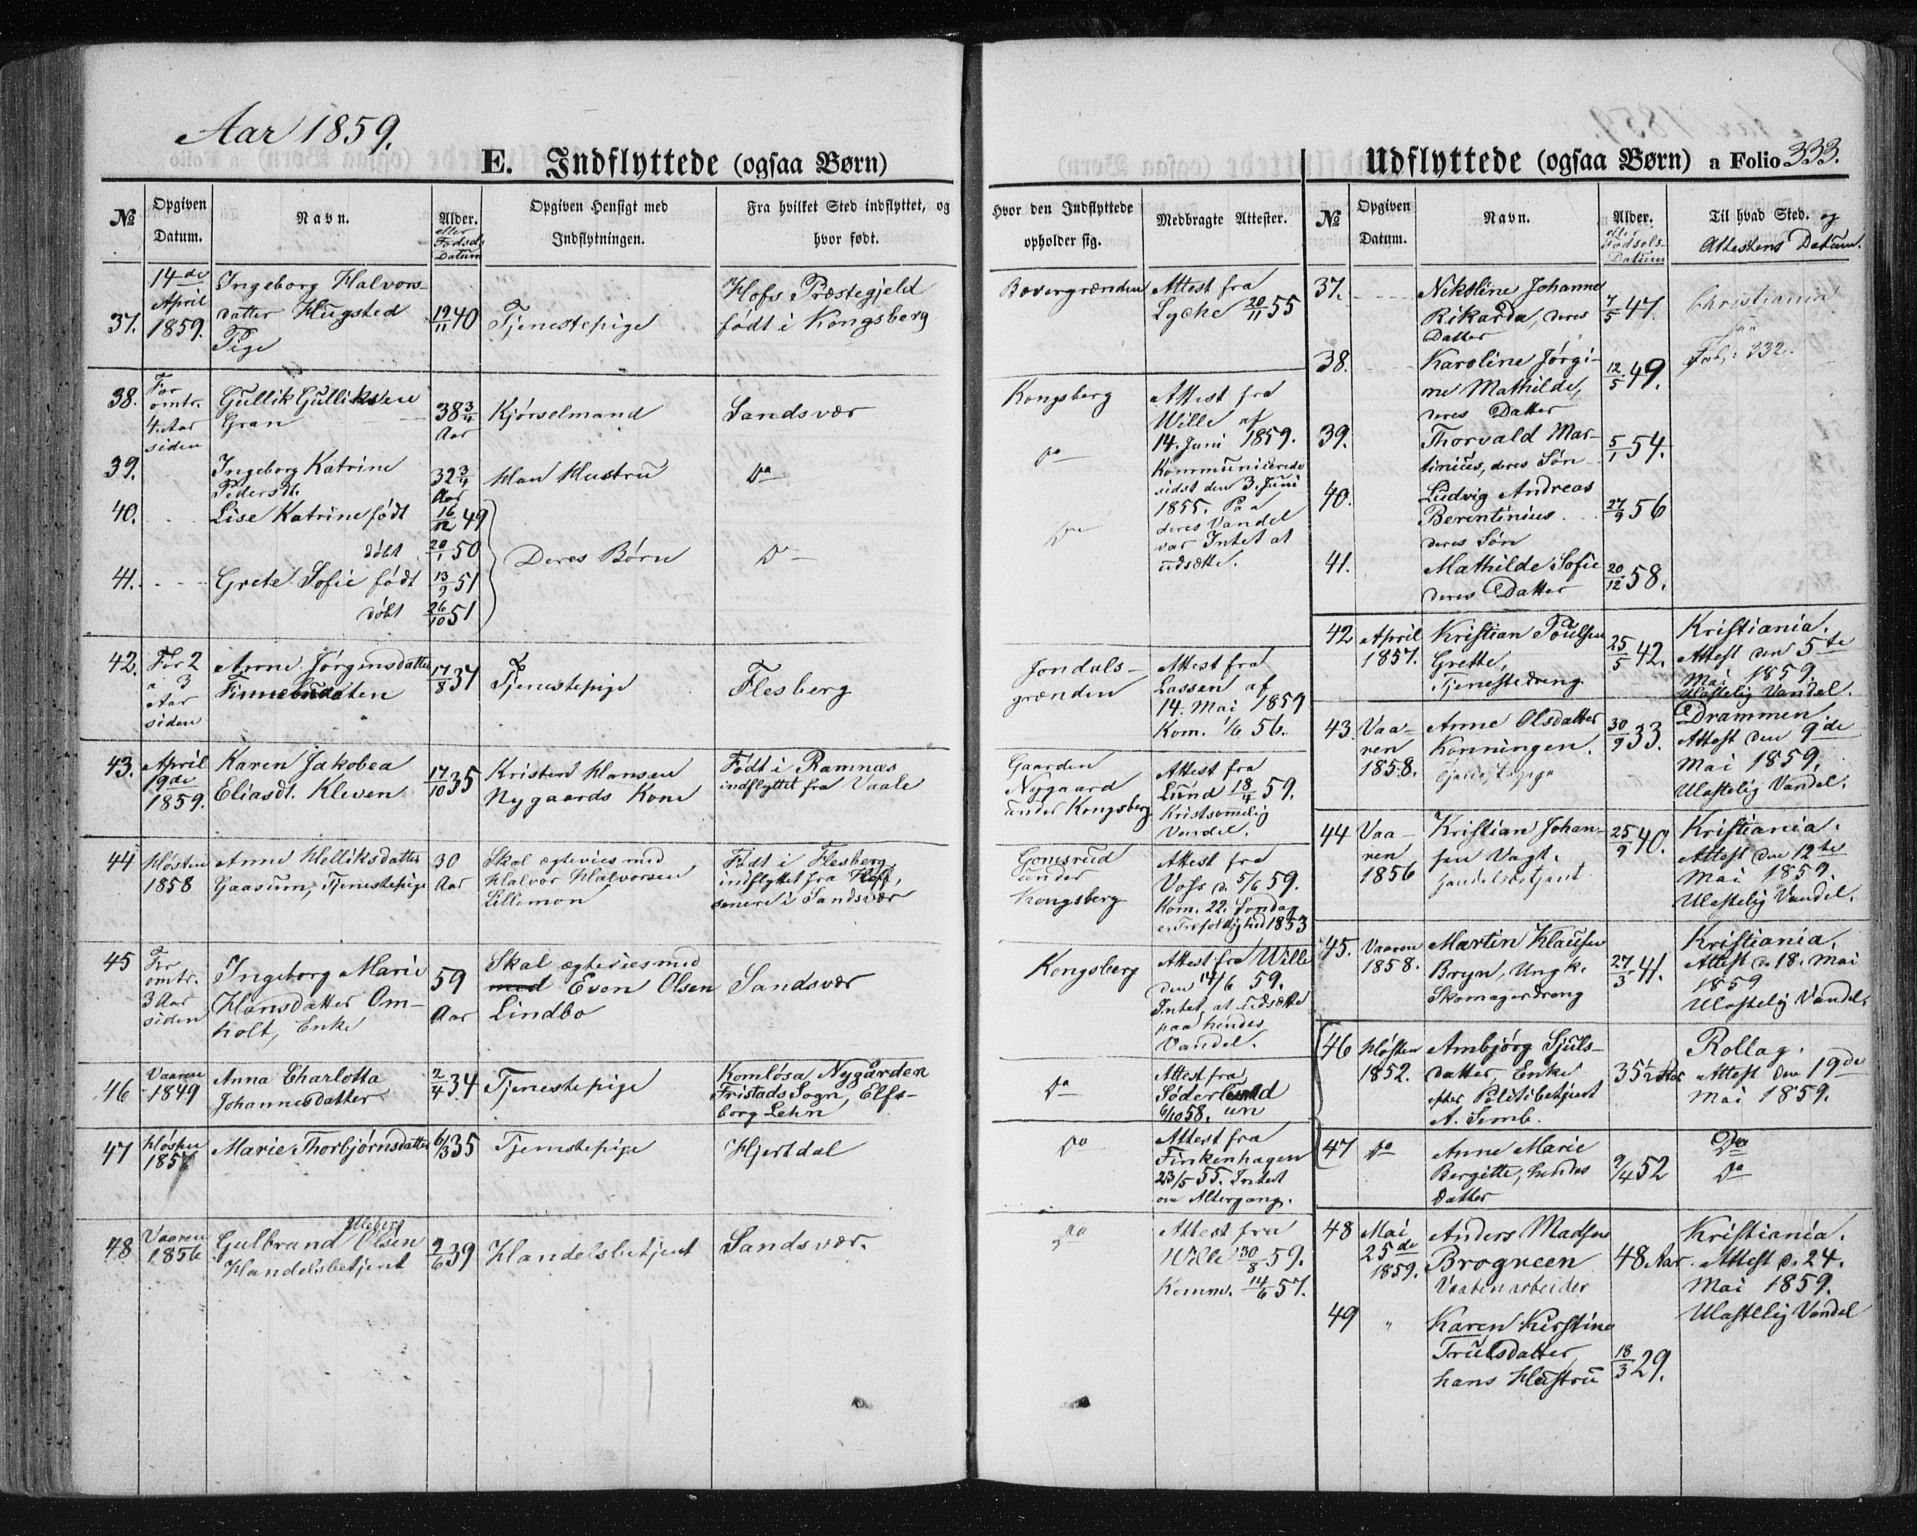 Aar 1859.
E. Indflyttede (ogsaa Børn)
№
Opgiven Datum.
Navn.
Alder.
eller Fødsels Datum
Opgiven Hensigt med Indflytningen.
Fra hvilket Sted indflyttet, og hvor født.
37.
14de April 1859.
Ingeborg Halvors-
datter Hugsted
Pige
19/11 40
Tjenestepige
Hofs Præstegjeld
født i Kongsberg
38.
For omtr. 4 Aar siden
Gullik Gulliksen
Gran
38 3/4 Aar
Kjørselmand
Sandsvær
39.
Ingeborg Katrine
Pedersdt.
32 3/4 Aar
Hans Hustru
do
40.
Lise Katrine født
16/12 49
døbt
20/1 50
Deres Børn
do
41.
Grete Sofie født
13/9 51
døbt
26/10 51
42.
For 2 à 3 Aar siden
Anne Jørgensdatter
17/8 37
Tjenestepige
Flesberg
43.
April 19de 1859.
Karen Jakobea
Eliasdt. Kleven
17/10 35
Kristen Hansen
Nygaards Kone
Født i Ramnæs
indflyttet fra Vaale
44
Høsten 1858
Anne Helliksdatter
Gaasum, Tjenestepige
30 Aar
Skal ægtevies med
Halvor Halvorsen
Lillemon
Født i Flesberg
indflyttet fra Hoff,
senere i Sandsvær
45
For omtr. 3 Aar siden
Ingeborg Marie
Hansdatter Om-
holt, Enke
59 Aar
Skal ægtevies med
med Even Olsen
Lindbo
Sandsvær
46
Vaaren 1849
Anna Charlotta
Johannesdatter
2/4 34
Tjenestepige
Komlösa, Nygården
Fristads Sogn, Elfs-
borg Lehn
47
Høsten
Marie Thorbjørnsdatter
6/3 35
Tjenestepige
Hjertdal
48
Vaaren 1856
Ulleberg
Gulbrand Olsen
Handelsbetjent
9/6 39
Handelsbetjent
Sandsvær.
Hvor den Indflyttede opholder sig.
Medbragte Attester.
Bevergrænden
Attest fra
Lyche 20/11 55
Kongsberg
do
do
Attest fra
Wille af
14. Juni 1859.
Kommunicerede
sidst den 3. Juni
1855. Paa
deres Vandel
var Intet at
udsætte.
Jondals-
grænden
Attest fra
Lassen af
14. Mai 1859
Kom. 1/6 56.
Gaarden
Nygaard
under Kongsberg
Attest fra
Lund 18/4 59.
Kristsømelig
Vandel.
Gomsrud
under
Kongsberg
Attest fra
Voss d. 5/6 59.
Kom. 22. Søndag
e. Trefoldighed 1853
Kongsberg
Attest fra Wille
den 14/6 59.
Intet at udsætte
paa hendes
Vandel.
do
Attest fra
Søderlund
6/10 58.
do
Attest fra
Finkenhagen
23/5 55. Intet
om Altergang.
do
Attest fra
Wille 30/8 59.
Komm. 14/6 57.
Udflyttede (ogsaa Børn) a Folio 333.
№
Opgiven Datum.
Navn.
Alder.
eller Fødsels-Datum
Til hvad Sted. og Attestens Datum.
37.
Nikoline Johanne
Rikarda, deres
Datter
7/5 47.
Christiania
Fol. 332.
38.
Karoline Jørgi-
ne Mathilde,
deres Datter
12/5 49.
39.
Thorvald Mar-
tinius, deres Søn
5/1 54.
40.
Ludvig Andreas
Berentinius
deres Søn
27/9 56
41.
Mathilde Sofie
deres Datter
20/12 58.
42
April 1857.
Kristian Poulsen
Grette,
Tjenestedreng
25/5 42.
Kristiania.
Attest den 5te
Mai 1859.
Ulastelig Vandel.
43
Vaaren 1858.
Anne Olsdatter
Konningen.
30/9 33.
Drammen
Attest den 9de
Mai 1859.
Ulastelig Vandel.
44
Vaaren 1856
Kristian Johan-
sen Vagt.
Handelsbetjent
25/9 40.
Kristiania.
Attest den 12te
Mai 1859.
Ulastelig Vandel.
45.
Vaaren 1858.
Martin Klausen
Bryn, Ungk.
Skomagerdreng
27/3 41.
Kristiania.
Attest d. 18. Mai
1859
Ulastelig Vandel.
46
Høsten 1852.
Ambjørg Sjuls-
datter Enke
efter Politibetjent
A. Semb.
35 1/2 Aar
Rollag.
Attest den 19de
Mai 1859.
47
do
Anne Marie
Bergitte, hendes
Datter
9/4 52
Do
do
48
Mai 25de 1859.
Anders Madsen
Brogneen
Vaabenarbeider
48 Aar
Kristiania.
Attest d. 24.
Mai 1859.
Ulastelig Vandel
49
"
Karen Kirstine
Trulsdatter
hans Hustru
18/3 29.